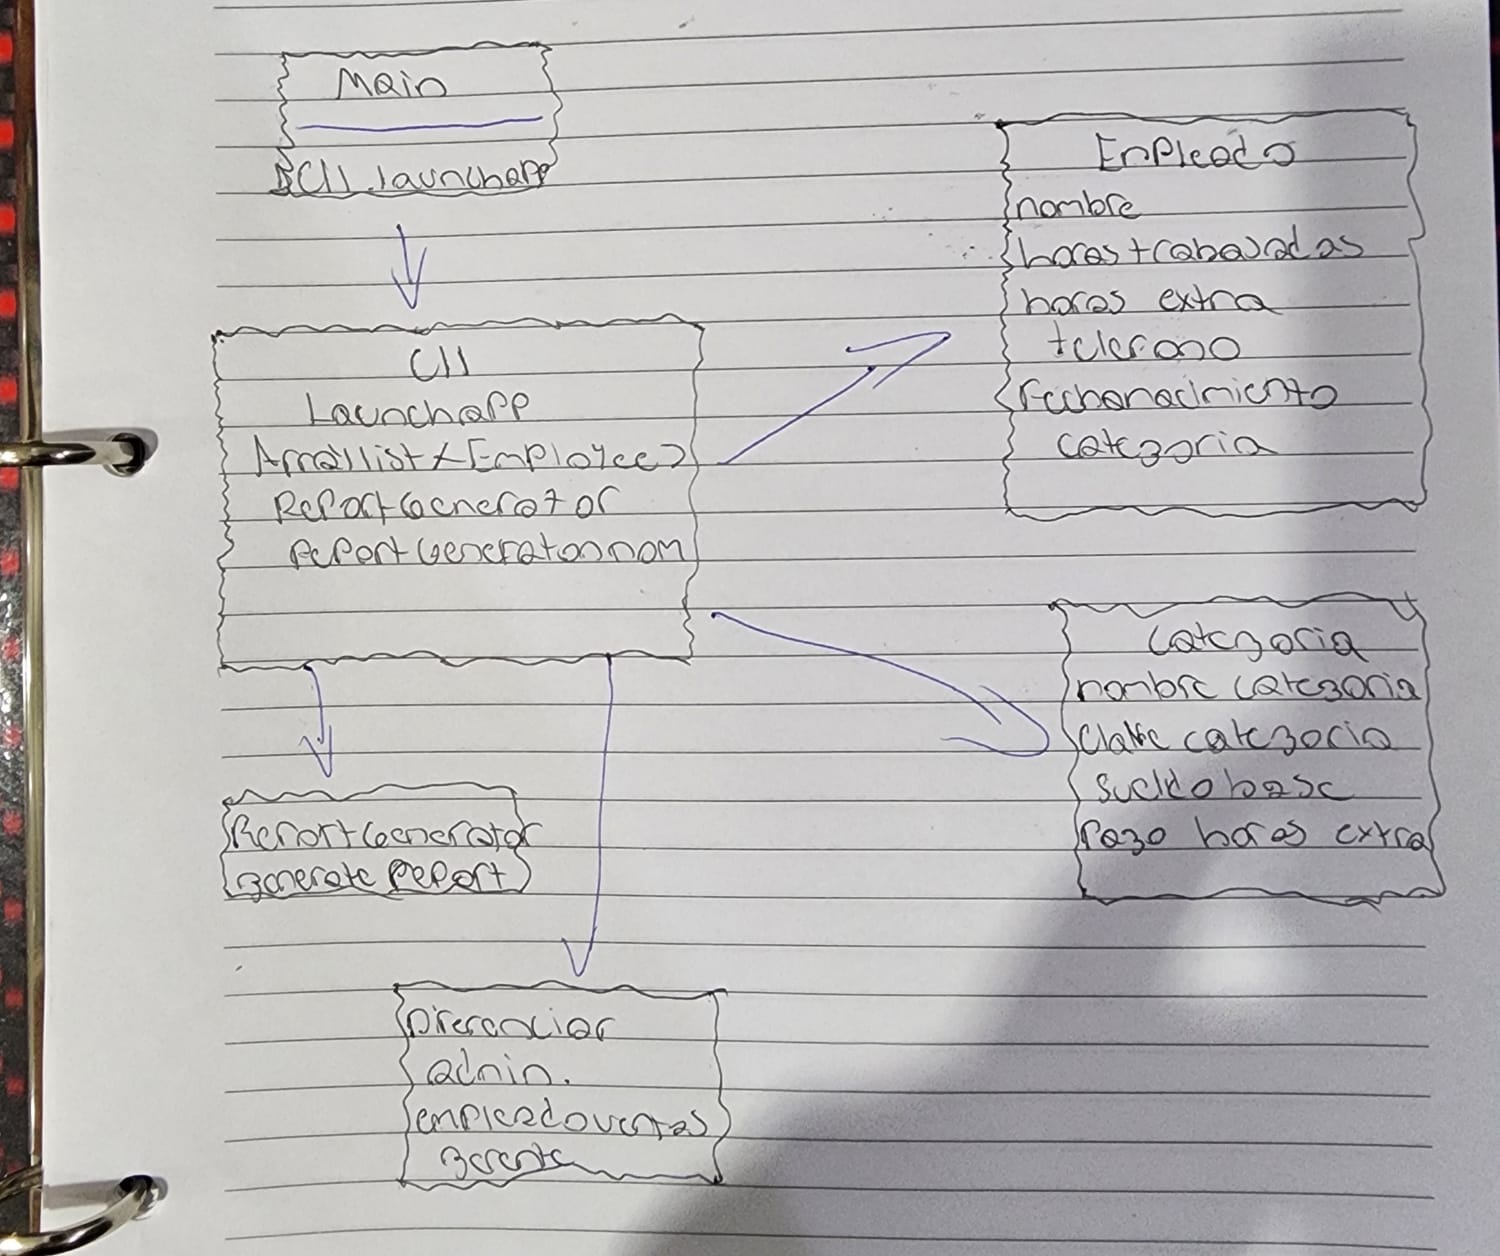 Main
CLI.launchapp
CLI
Launchapp
Arraylist <Employee>
ReportGenerator
ReportGeneratornom
Empleado
nombre
horas trabajadas
horas extra
telefono
fechanacimiento
categoria
Categoria
nombre categoria
clave categoria
sueldo base
pago horas extra
ReportGenerator
generate Report
Diferenciar
admin.
empleadoventas
gerente